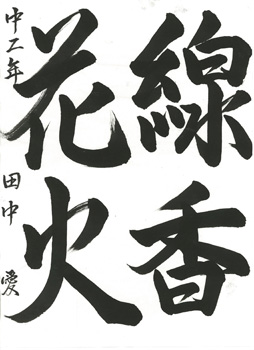 線香
花火
中二年 田中 愛